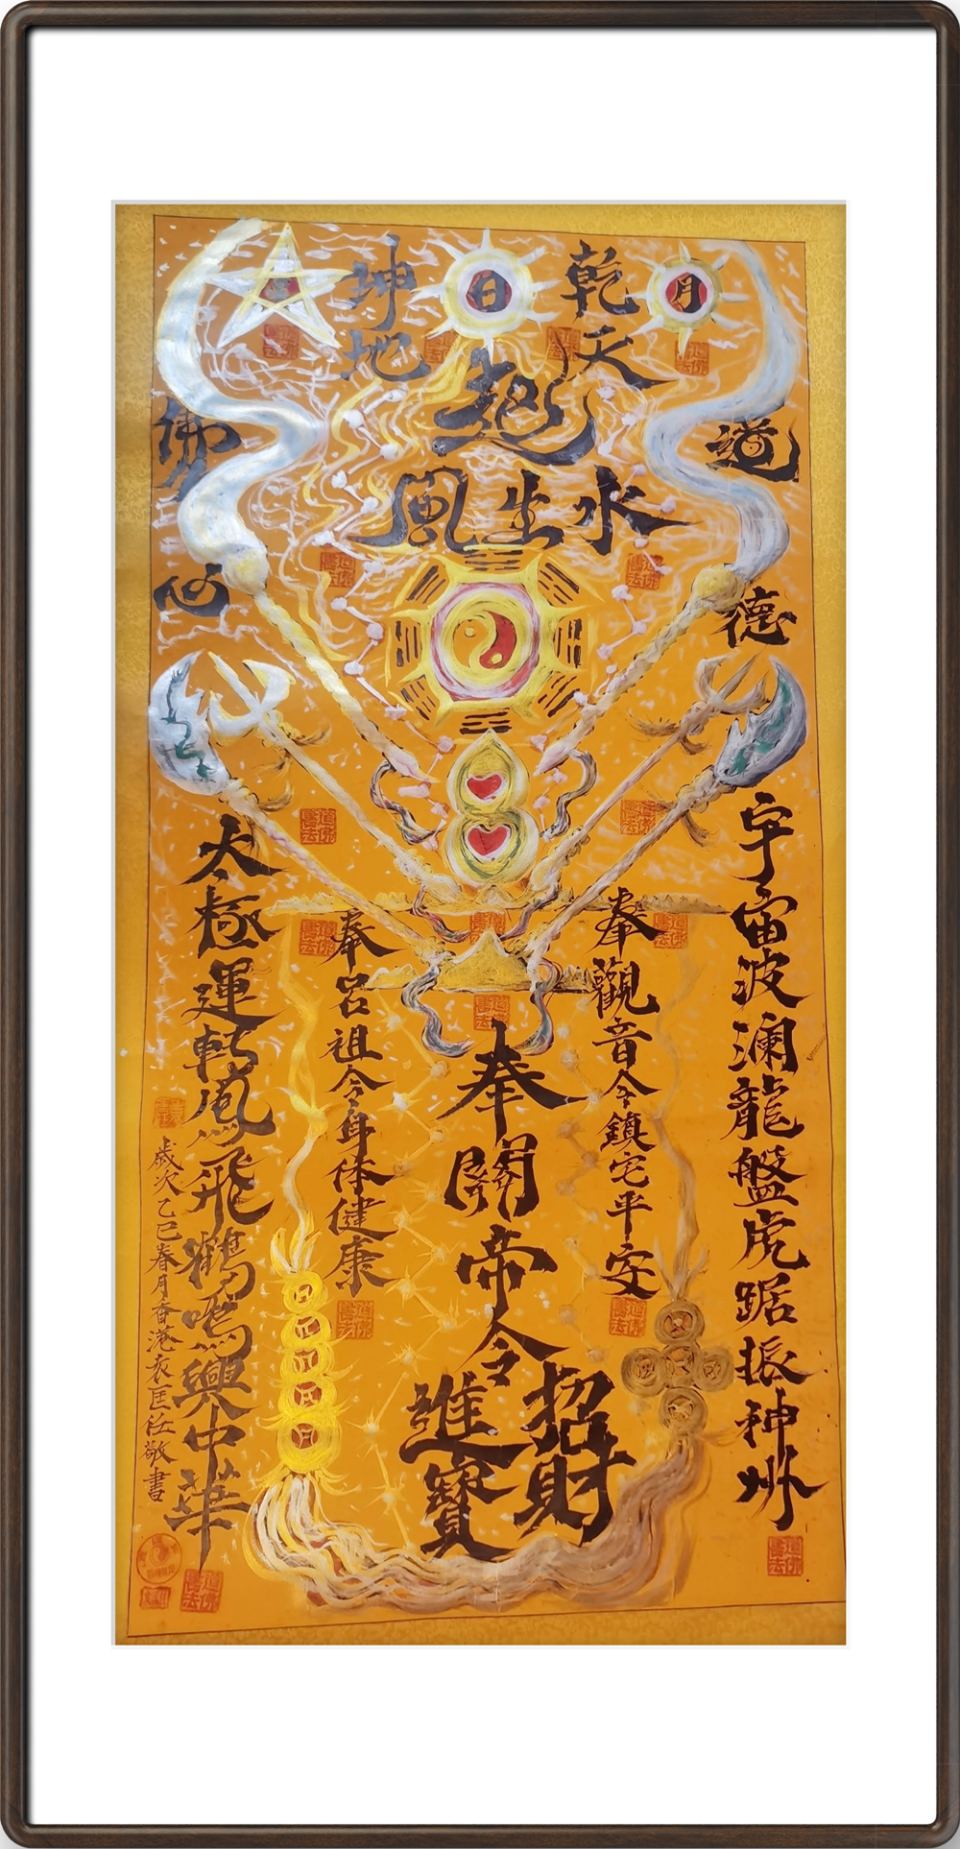 月
乾天
日
坤地
起
風生水
道德
佛心
宇宙波澜龍盤虎踞振神州
奉觀音令鎮宅平安
奉關帝令
招財
進寶
奉呂祖令身体健康
太極運轉鳳飛鶴鳴興中華
歲次乙巳春月香港袁匡任敬書